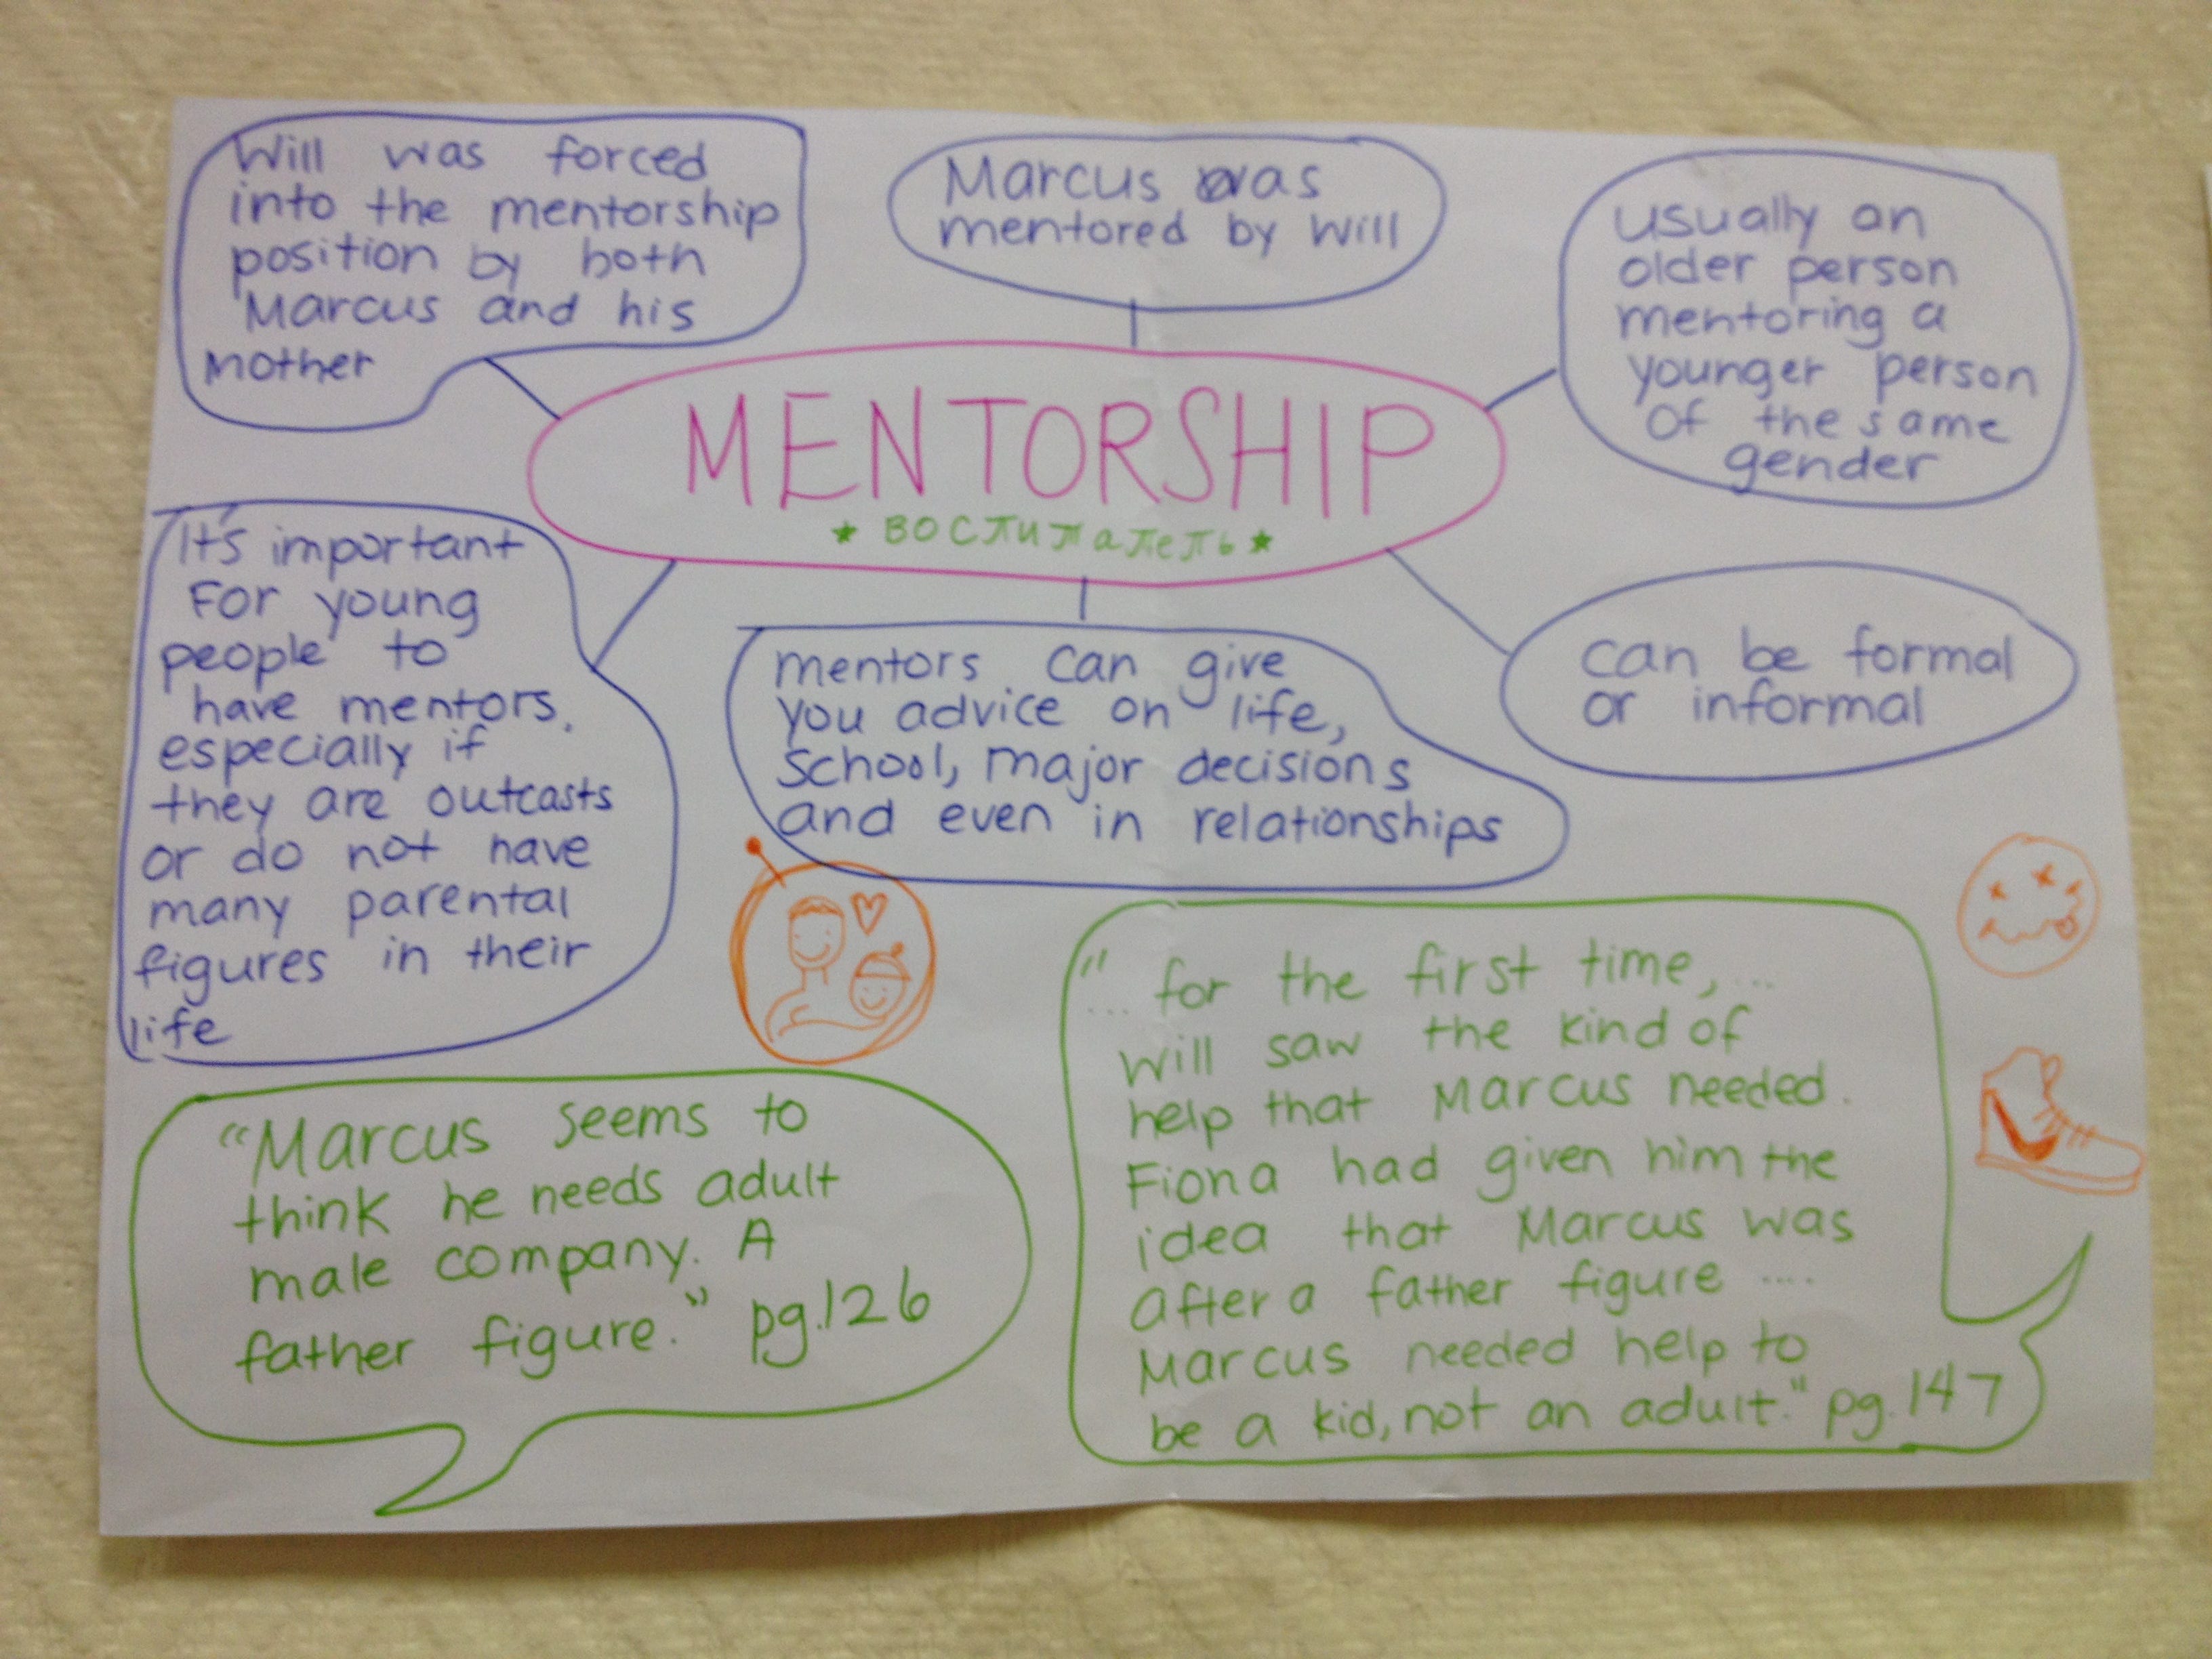 Will was forced
into the mentorship
position by both
Marcus and his
mother
Marcus was
mentored by Will
usually an
older person
mentoring a
younger person
of the same
gender
MENTORSHIP
★ воспитатель ★
It's important
For young
people to
have mentors,
especially if
they are outcasts
or do not have
many parental
figures in their
life
mentors can give
you advice on life,
school, major decisions
and even in relationships
can be formal
or informal
"Marcus seems to
think he needs adult
male company. A
father figure." pg.126
"... for the first time, ...
Will saw the kind of
help that Marcus needed.
Fiona had given him the
idea that Marcus was
after a father figure ....
Marcus needed help to
be a kid, not an adult." pg.147